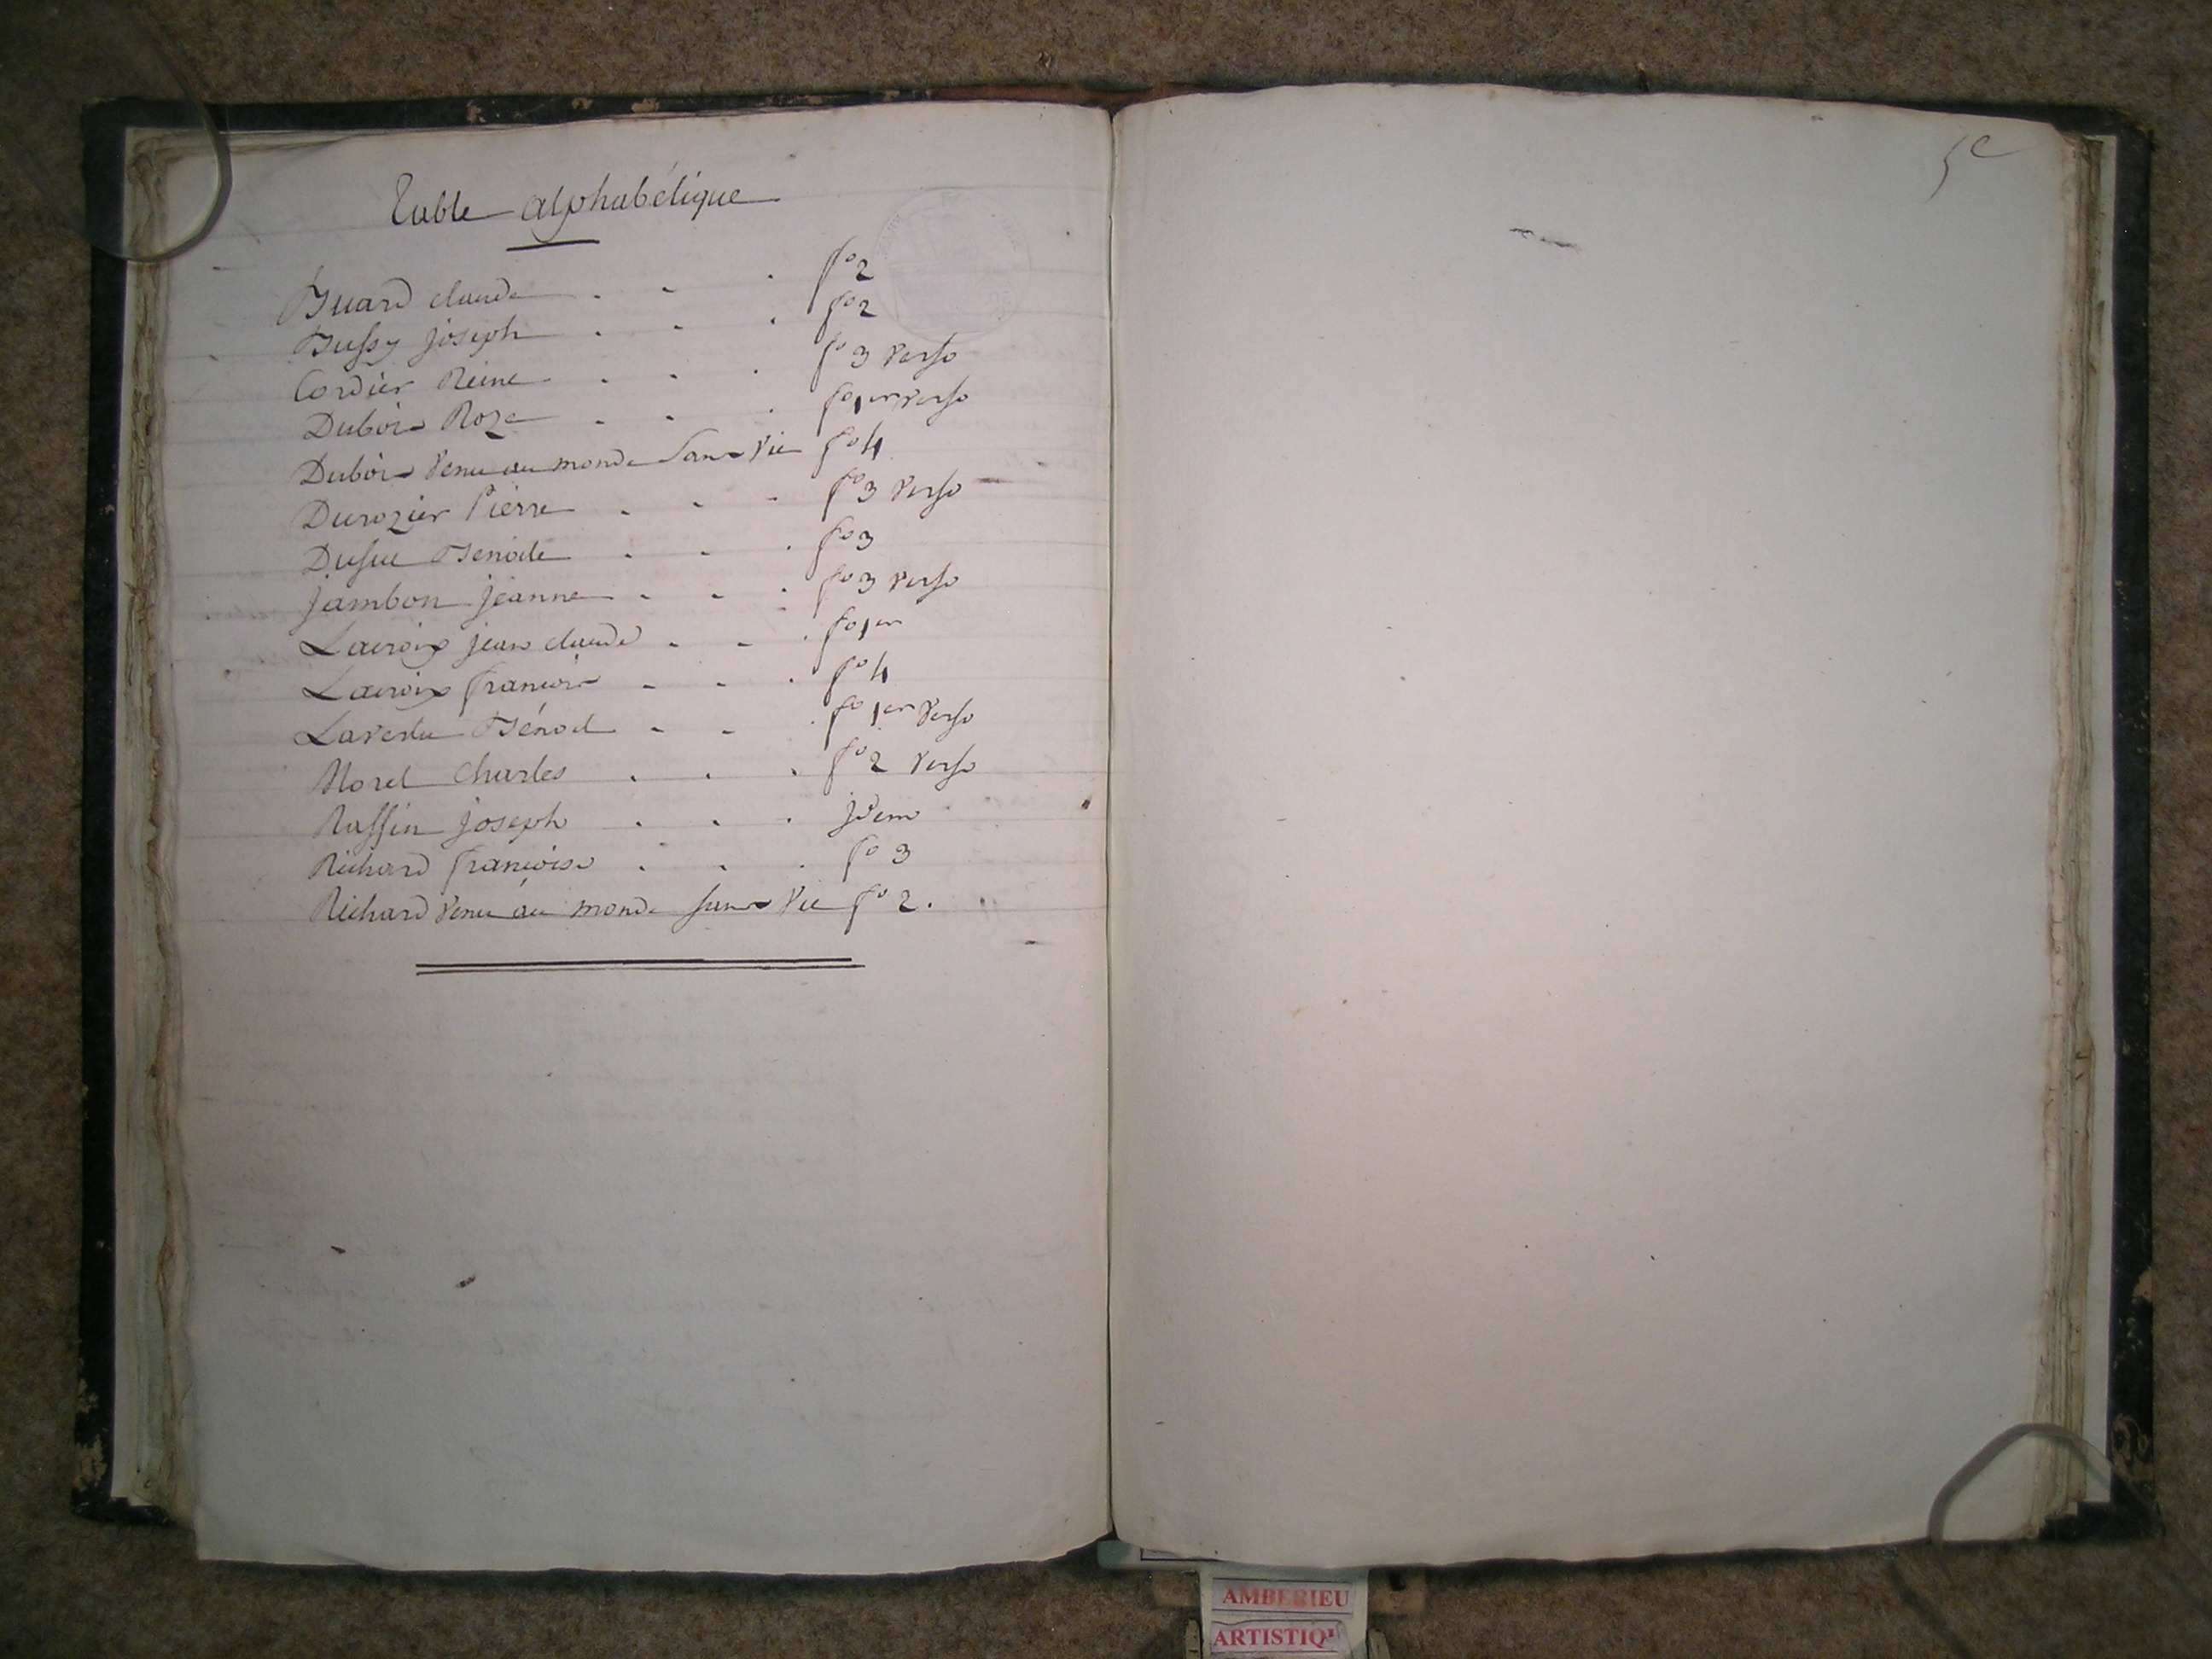 Table alphabétique
Buard claude . . . fo 2
Bussy joseph . . . fo 2
Cordier Reine . . . fo 3 verso
Dubois Roze . . . fo 1er verso
Dubois venu au monde sans vie fo 4
Durozier Pierre . . . fo 3 verso
Dusu Benoite . . . fo 3
jambon jeanne . . . fo 3 verso
Lacroix jean claude . . . fo 1er
Lacroix françois . . . fo 4
Bénoit . . . fo 1er verso
Morel Charles . . . fo 2 verso
Ruffin joseph . . . jdem
Richard françoise . . . fo 3
Richard venu au monde sans vie fo 2.
5e
AMBERIEU
ARTISTIQ